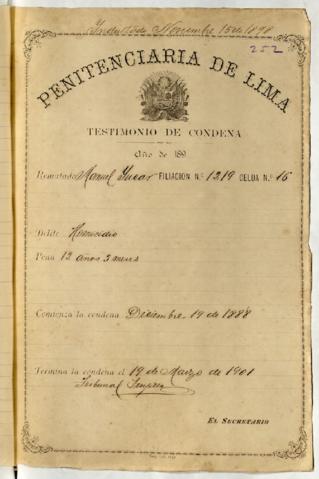 Noviembre 15 de 1898
252
PENITENCIARIA DE LIMA
TESTIMONIO DE CONDENA
Año de 189
Rematado Manuel FILIACION N.° 1219 CELDA N.° 16
Delito Homicidio
Pena 12 años 3 meses
Comienza la condena Diciembre 19 de 1888
Termina la condena el 19 de Marzo de 1901
Tribunal
EL SECRETARIO